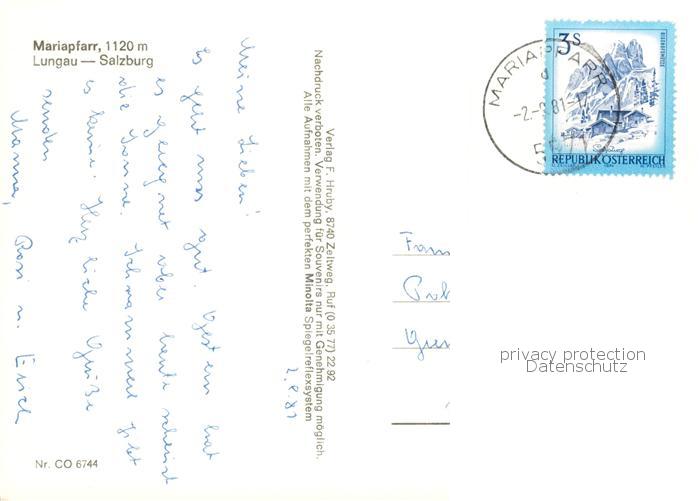 Mariapfarr, 1120 m
Lungau — Salzburg
Meine Lieben!
Es geht uns gut. Gestern hat
es geregnet aber heute scheint
die Sonne. Schwammerl gibt
es keine. Herzliche Grüße
senden
Mama, Rosi u. Erich
2.9.81
Verlag F. Hruby, 8740 Zeltweg, Ruf (0 35 77) 22 92
Nachdruck verboten. Verwendung für Souvenirs nur mit Genehmigung möglich.
Alle Aufnahmen mit dem perfekten Minolta Spiegelreflexsystem
Nr. CO 6744
MARIAPFARR
3 S
BISCHOFSMÜTZE
Salzburg
REPUBLIK ÖSTERREICH
Fam
privacy protection
Datenschutz